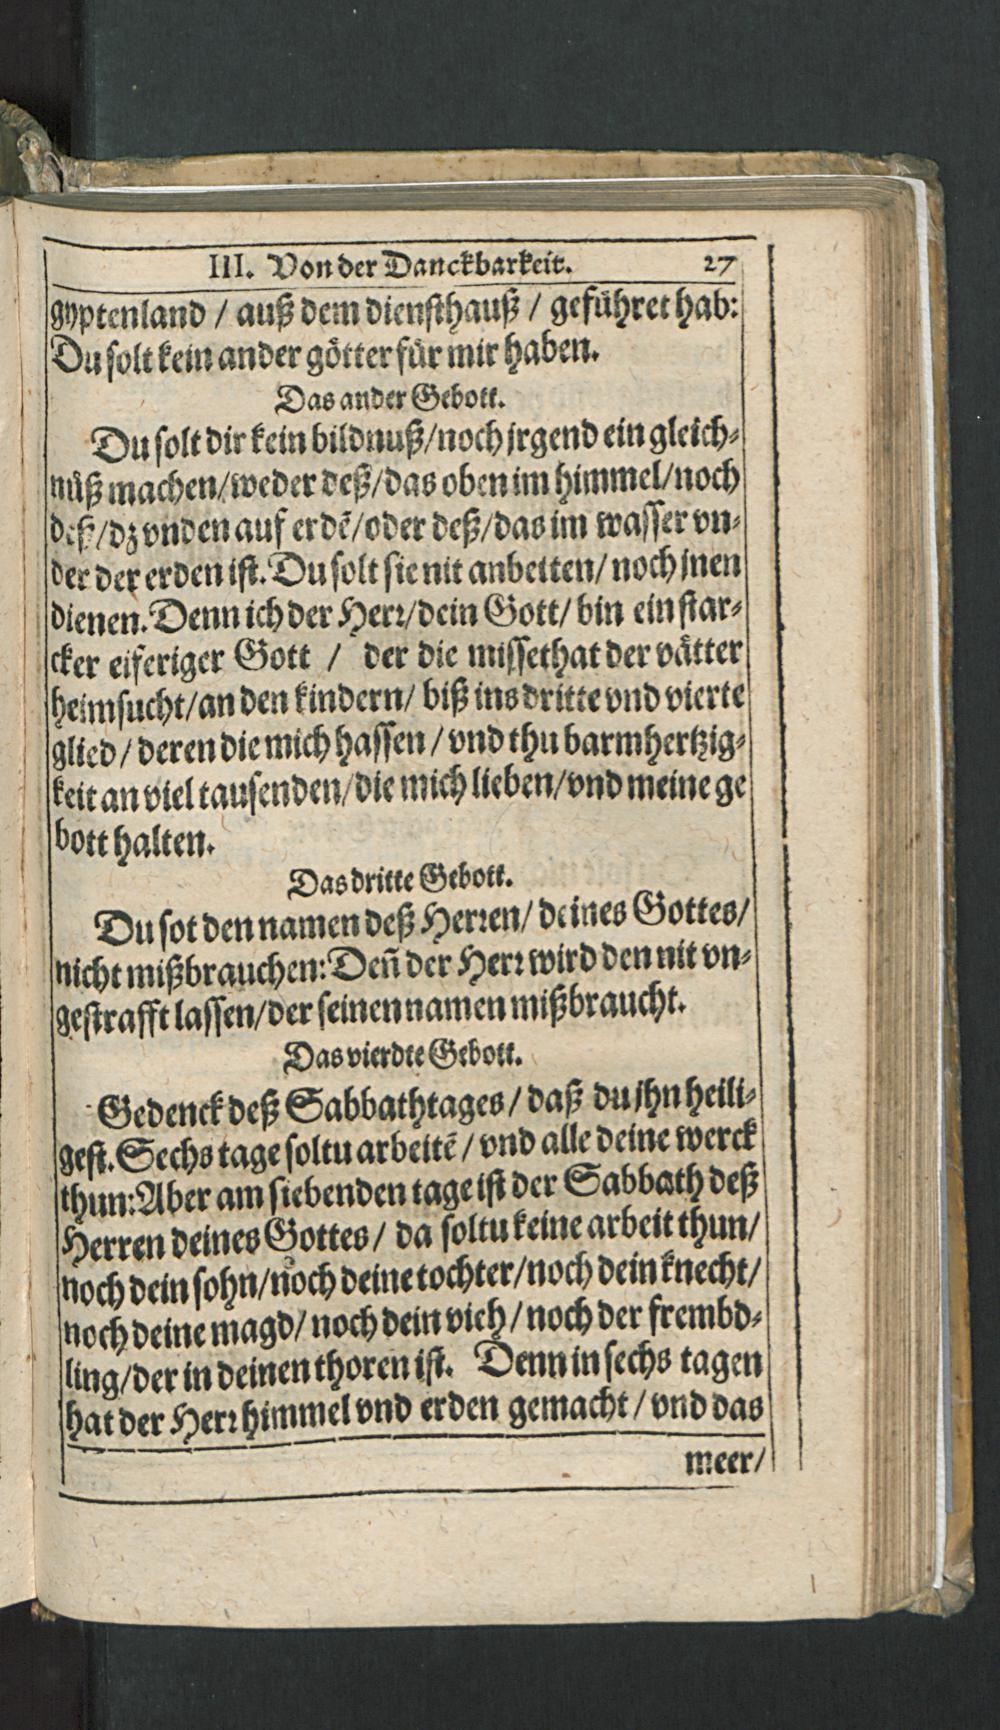 III. Von der Danckbarkeit. 27
gyptenland / auß dem diensthauß / geführet hab:
Du solt kein ander götter für mir haben.
Das ander Gebott.
Du solt dir kein bildnuß/noch jrgend ein gleich-
nüß machen/weder deß/das oben im himmel/noch
deß/dz vnden auf erdē/oder deß/das im wasser vn-
der der erden ist. Du solt sie nit anbetten/noch jnen
dienen. Denn ich der Herr/dein Gott/ bin ein star-
cker eiferiger Gott / der die missethat der vätter
heimsucht/an den kindern/ biß ins dritte vnd vierte
glied/ deren die mich hassen / vnd thu barmhertzig-
keit an viel tausenden/die mich lieben/vnd meine ge
bott halten.
Das dritte Gebott.
Du sot den namen deß Herren/ deines Gottes/
nicht mißbrauchen: Deñ der Herr wird den nit vn-
gestrafft lassen/der seinen namen mißbraucht.
Das vierdte Gebott.
Gedenck deß Sabbathtages / daß du jhn heili-
gest. Sechs tage soltu arbeitē / vnd alle deine werck
thun: Aber am siebenden tage ist der Sabbath deß
Herren deines Gottes/ da soltu keine arbeit thun/
noch dein sohn/noch deine tochter/noch dein knecht/
noch deine magd/ noch dein vieh / noch der frembd-
ling/der in deinen thoren ist. Denn in sechs tagen
hat der Herr himmel vnd erden gemacht / vnd das
meer/